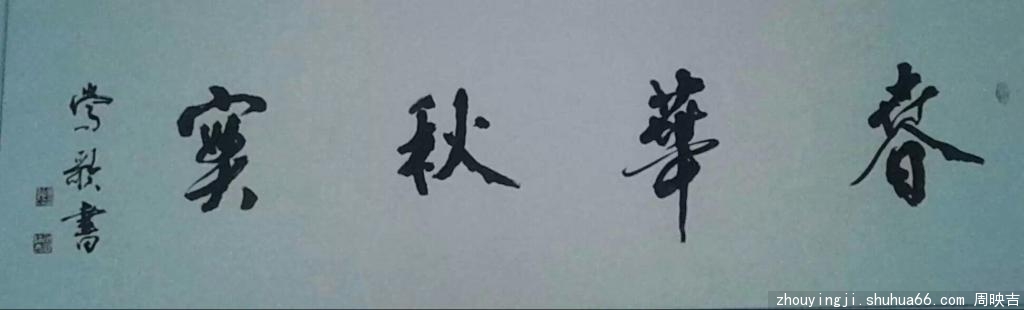 春華秋實
鶯歌書
zhouyingji.shuhua66.com 周映吉